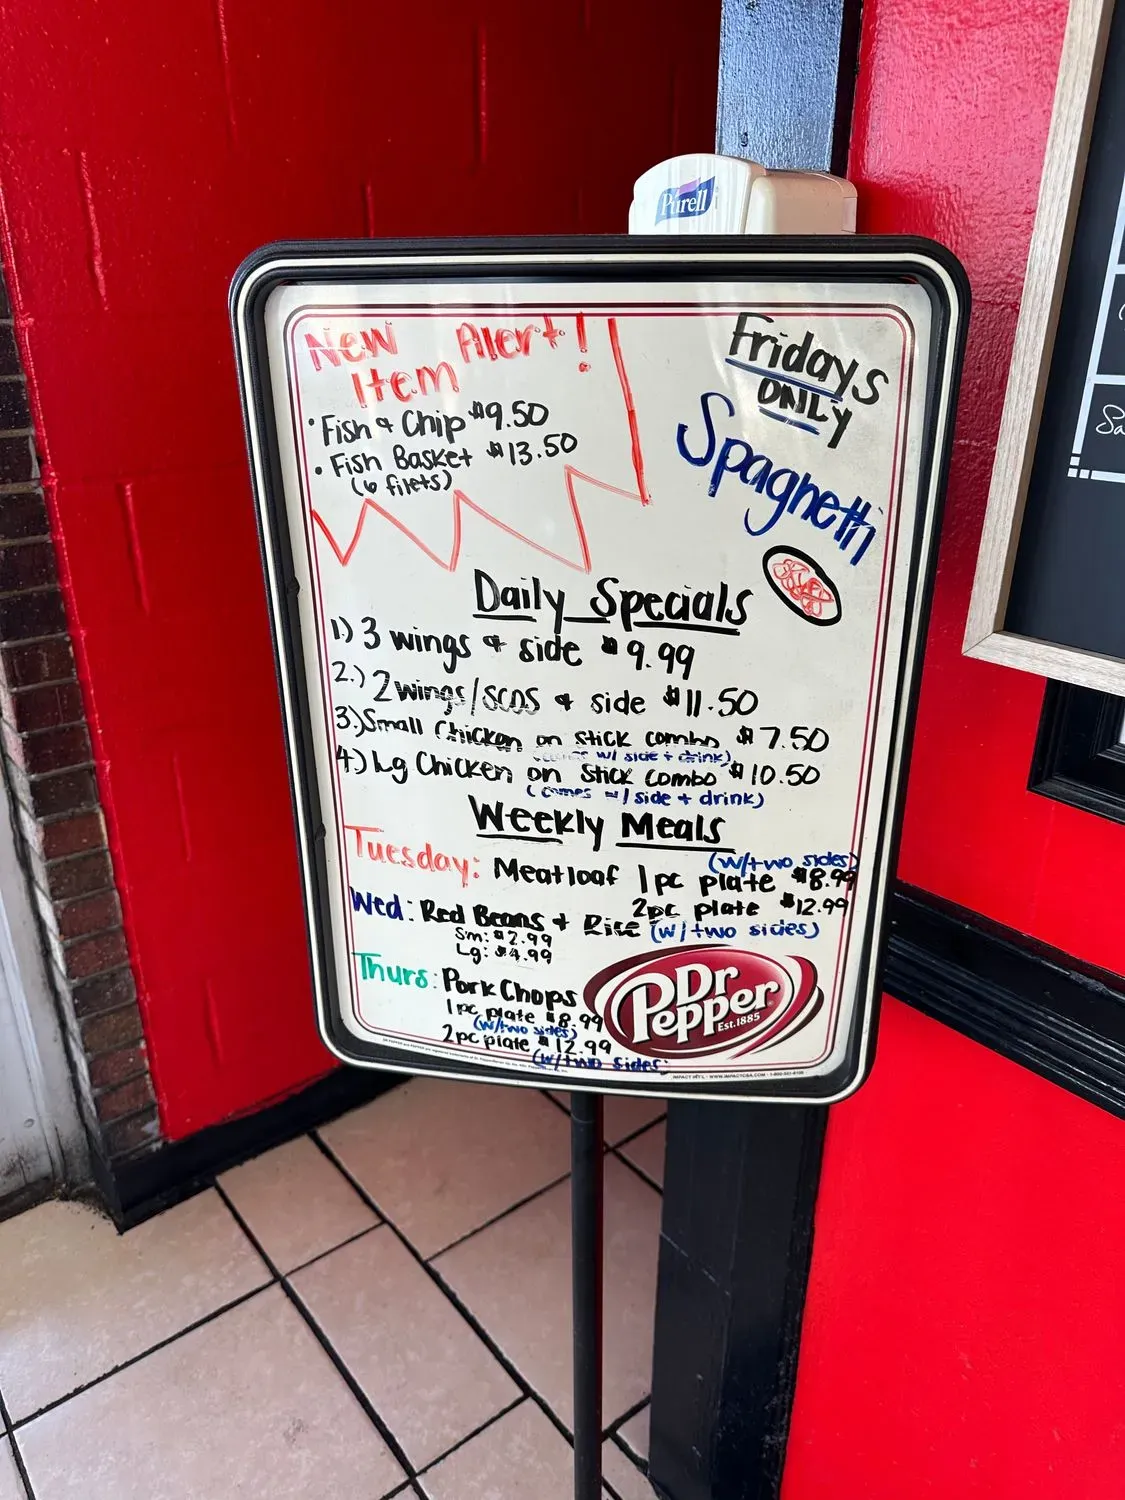 Purell
New Alert!
Item
• Fish & Chip $9.50
• Fish Basket $13.50
(6 filets)
Fridays
ONLY
Spaghetti
Daily Specials
1.) 3 wings & side $9.99
2.) 2 wings/SCOS & side $11.50
3.) Small Chicken on stick combo $7.50
(comes w/ side + drink)
4.) Lg Chicken on stick combo $10.50
(comes w/ side + drink)
Weekly Meals
(w/two sides)
Tuesday: Meatloaf 1pc plate $8.99
2pc plate $12.99
Wed: Red Beans & Rice (w/two sides)
Sm: $2.99
Lg: $4.99
Thurs: Pork Chops
1pc plate $8.99
(w/two sides)
2pc plate $12.99
(w/two sides)
Dr
Pepper
Est.1885